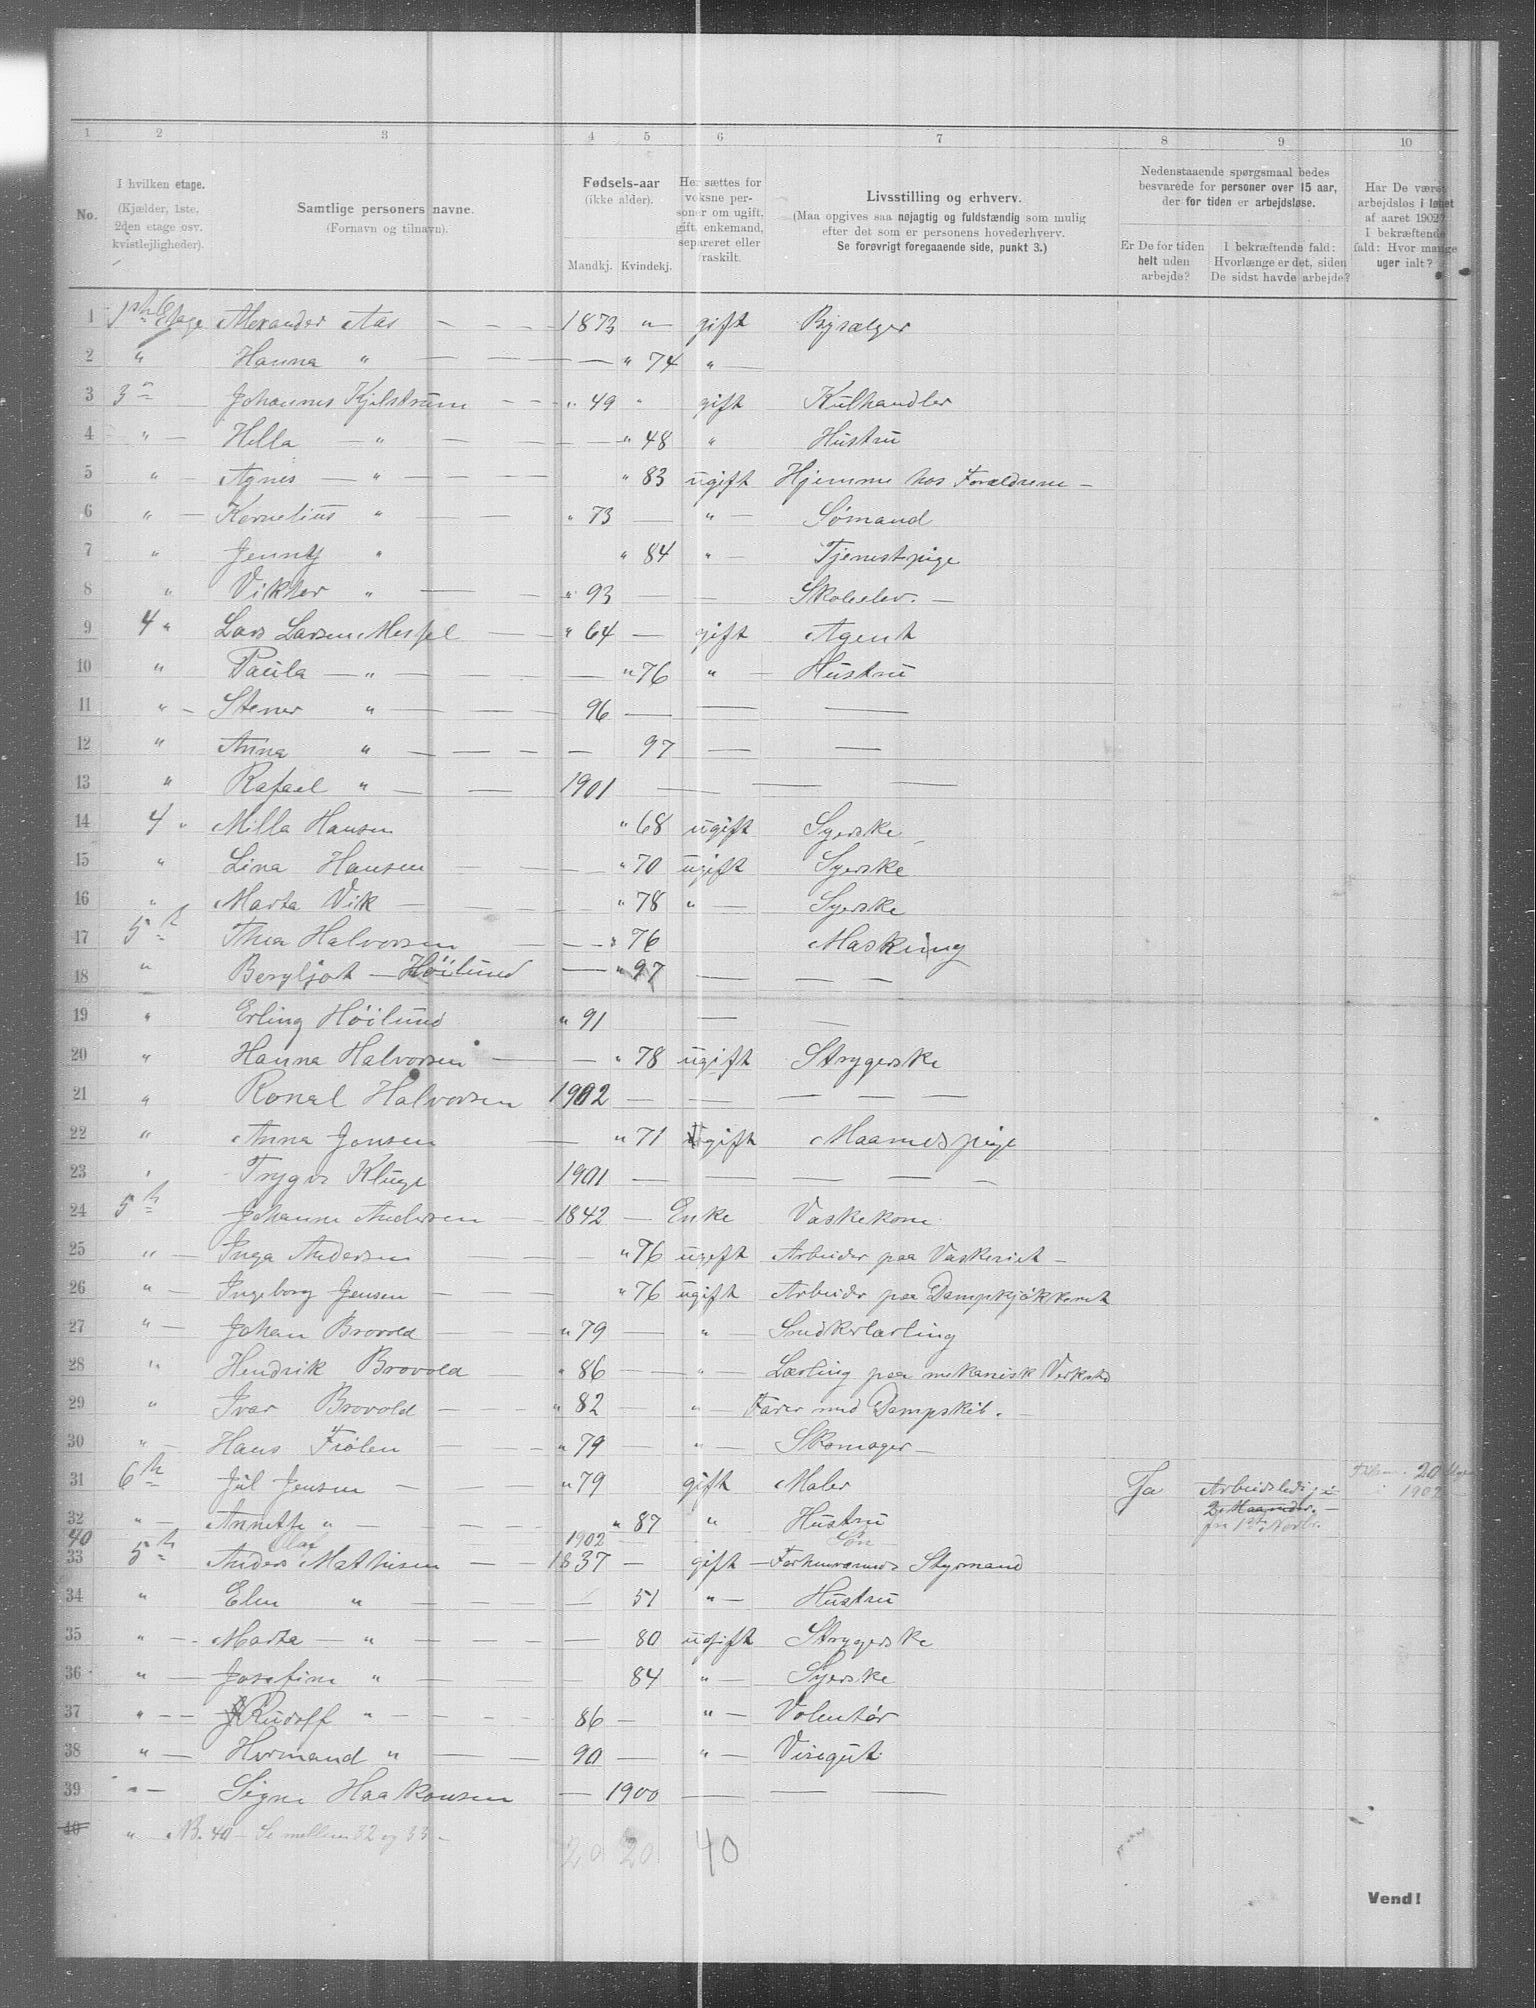 1 2 3 4 5 6 7 8 9 10
No.
I hvilken etage.
(Kjælder, 1ste, 2den etage osv. kvistlejligheder).
Samtlige personers navne.
(Fornavn og tilnavn).
Fødsels-aar
(ikke alder).
Mandkj. Kvindekj.
Her sættes for voksne personer om ugift, gift, enkemand, separeret eller fraskilt.
Livsstilling og erhverv.
(Maa opgives saa nøjagtig og fuldstændig som mulig
efter det som er personens hovederhverv.
Se forøvrigt foregaaende side, punkt 3.)
Nedenstaaende spørgsmaal bedes
besvarede for personer over 15 aar,
der for tiden er arbejdsløse.
Er De for tiden helt uden arbejde?
I bekræftende fald: Hvorlænge er det, siden De sidst havde arbejde?
Har De været arbejdsløs i løbet af aaret 1902? I bekræftende fald: Hvor mange uger ialt?
1 1ste Etage Alexander Aas — — — 1873 " gift Bysælger
2 " Hanna " — — — " 74 " —
3 3 " Johannes Kjelstrum — — " 49 " gift Kulhandler
4 " — Hella — " — — — " 48 " Hustru
5 " — Agnes — " — — — " 83 ugift Hjemme hos Forældrene —
6 " — Kornelius " — — " 73 — " — Sømand
7 " Jenny " " 84 " — Tjenestpige
8 " Viktor " — — " 93 — — Skoleelev. —
9 4 " Lars Larsen Messel — " 64 — gift Agent
10 " Paula — " — — — " 76 " — Hustru
11 " — Stener " — — — 96 — — —
12 " Anna " — — — — 97 — —
13 " Rafael " — — 1901 — — —
14 4 " Milla Hansen " 68 ugift Syerske
15 " Lina Hansen — — — " 70 ugift Syerske
16 " Marta Vik — — " 78 " — Syerske
17 5te Thea Halvorsen — — " 76 Masking
18 " Bergljot — Höilund — " 97 — — —
19 " Erling Höilund " 91 — —
20 " Hanna Halvorsen — — " 78 ugift Strygerske
21 " Ronal Halvorsen 1902 — — — — —
22 " Anna Jonsen — " 71 ugift Maanedspige
23 " Trygve Kluge 1901 — — — — —
24 5te Johanne Andersen — — 1842 — Enke Vaskekone
25 " — Inga Andersen — — " 76 ugift Arbeider paa Vaskeriet —
26 " — Ingeborg Jensen — — — " 76 ugift Arbeider paa Dampkjøkkenet
27 " — Johan Brovold — — — " 79 — " — Snedkerlærling
28 " Hendrik Brovold — " 86 — " — Lærling paa mekanisk Verksted
29 " Ivar Brovold — — — " 82 — " — Farer med Dampskib. —
30 " — Hans Fiölen — — " 79 — " — Skomager —
31 6te Jul Jensen — — — " 79 gift Maler Ja Arbeidsledig i 20
2 Maaneder — 1902
32 " — Annette " — — " 87 " Hustru fra 1ste Novbr.
40 Olaf 1902 — Søn —
33 5te Anders Mathisen — — 1837 — gift — Forhenværende Styrmand
34 " Elen " — — — — 51 " — Hustru
35 " — Marta — " — — — 80 ugift Strygerske
36 " — Josefine " — — 84 " — Syerske
37 " — — Rudolf " — — — — 86 — " — Volentør
38 " — Hermand " — — 90 — " — Visegut
39 " — Signe Haakonsen — 1900 — — —
40 " N.B. 40 — Se mellem 32 og 33 — 20 20 40
Vend!